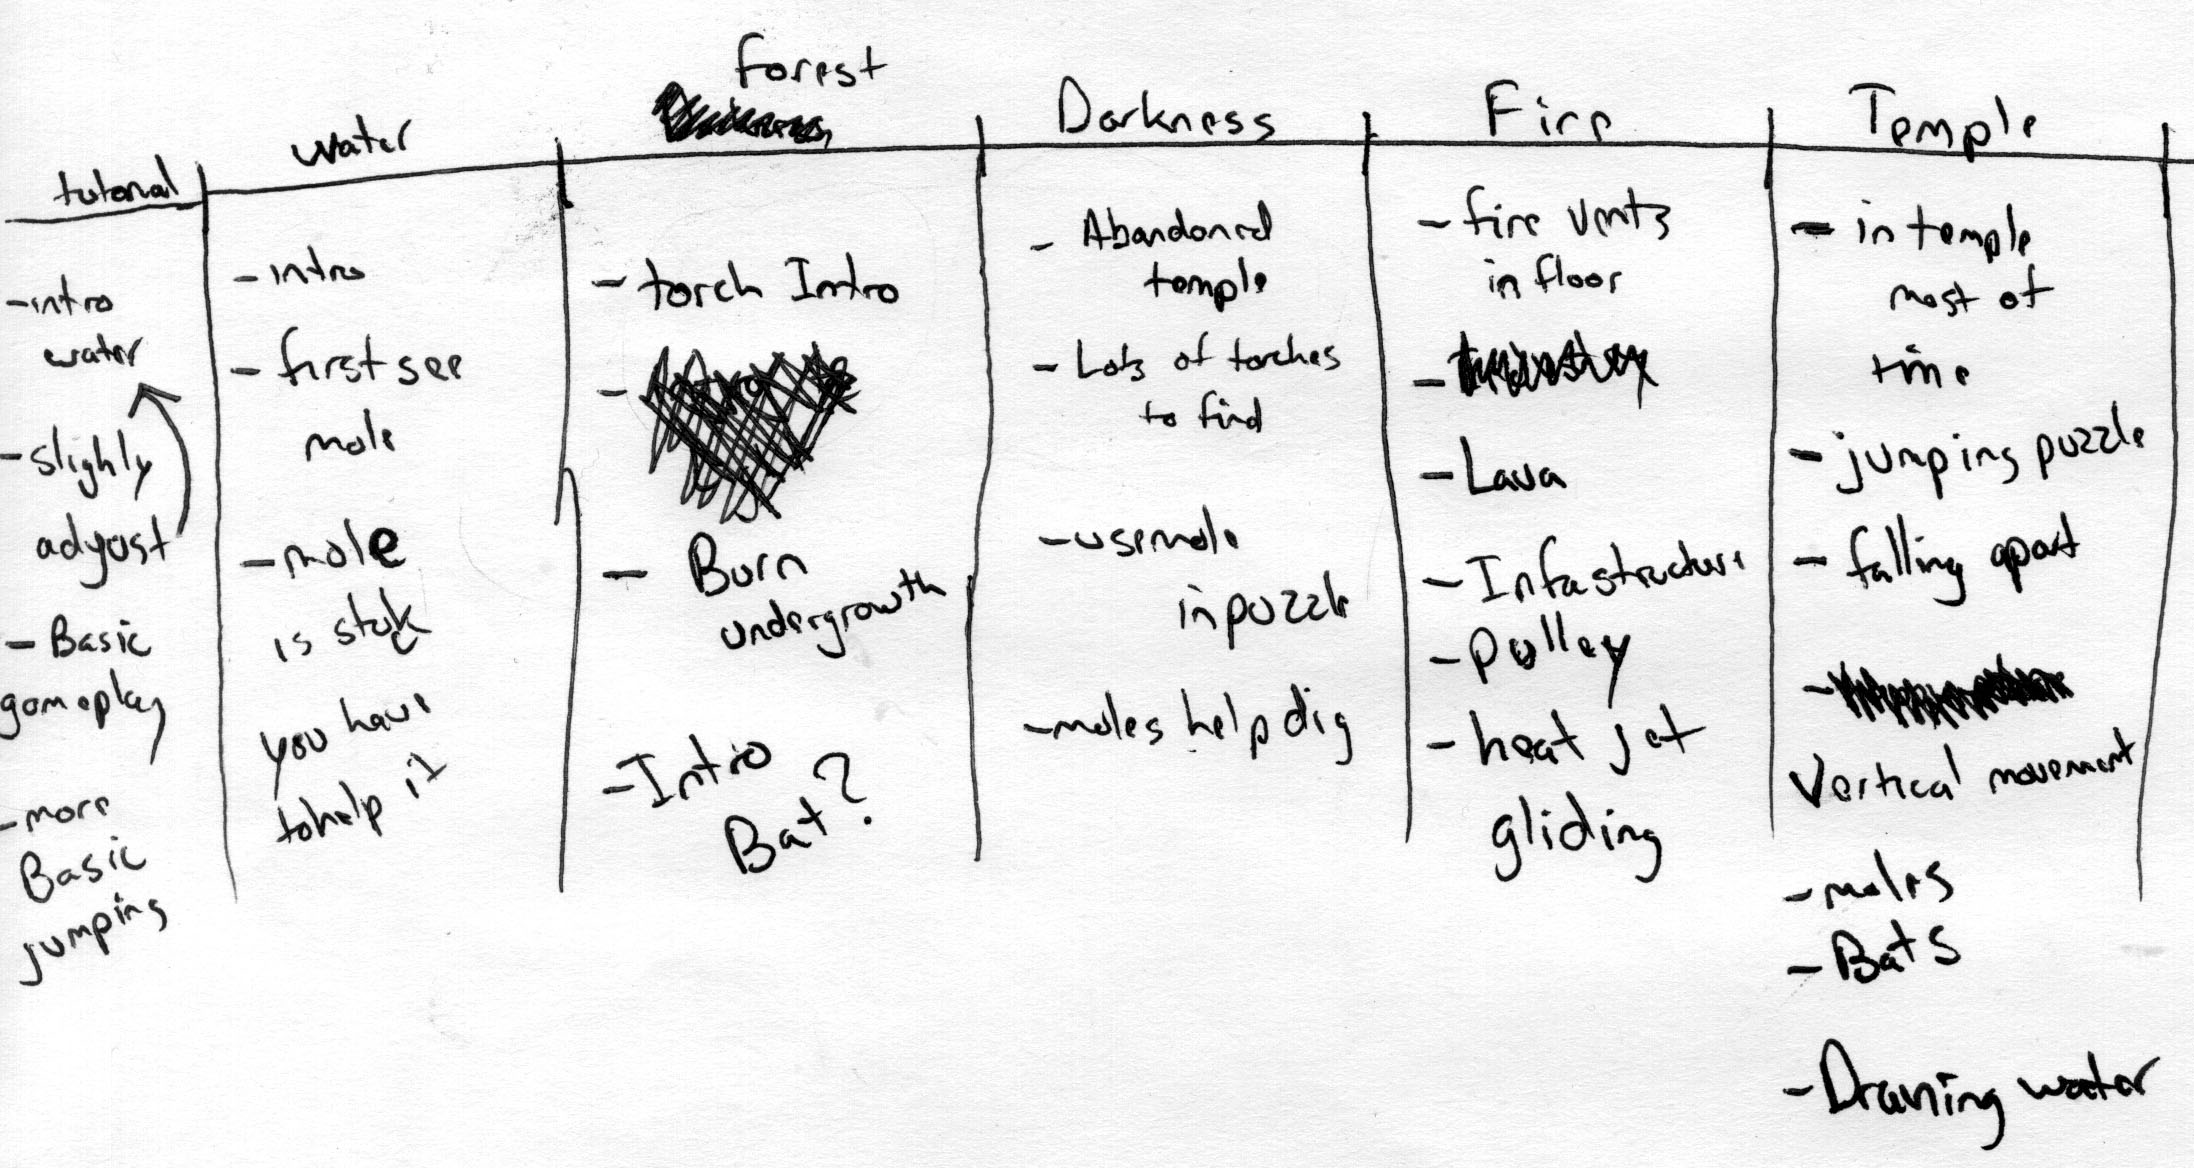 tutorial
-intro
water
-slighly
adyust
- Basic
gameplay
-more
Basic
jumping
water
-intro
- first see
mole
-mole
is stuk
you have
to help it
forest
- torch Intro
-
- Burn
undergrowth
-Intro
Bat?
Darkness
- Abandoned
temple
- Lots of torches
to find
-use mole
in puzzle
-moles help dig
Fire
- fire vents
in floor
-
- Lava
- Infastructure
- pulley
- heat jet
gliding
Temple
- in temple
most of
time
- jumping puzzle
- falling apart
-
Vertical movement
-moles
- Bats
-Draning water